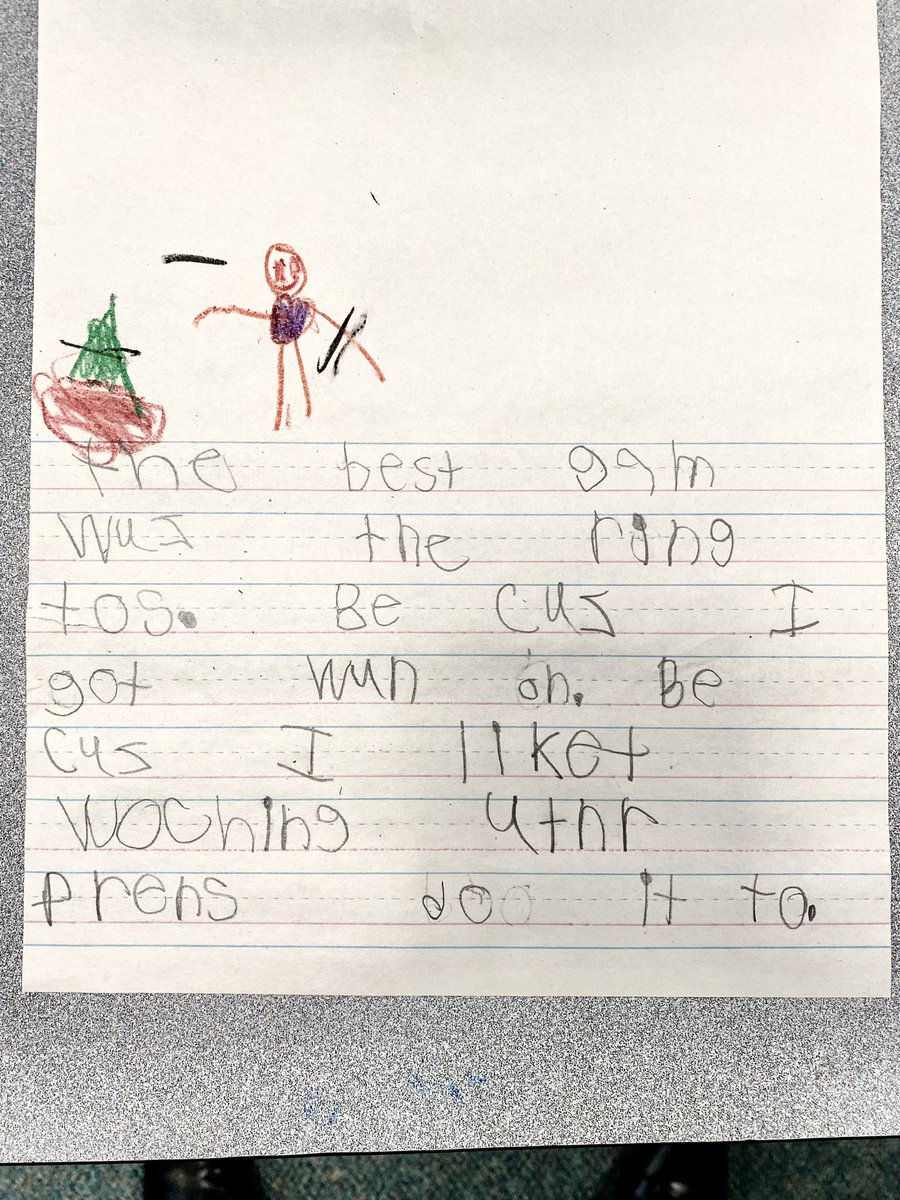 the best gam
wus the ring
tos. Be cus I
got wun on. Be
cus I liket
woching utnr
prens do it to.